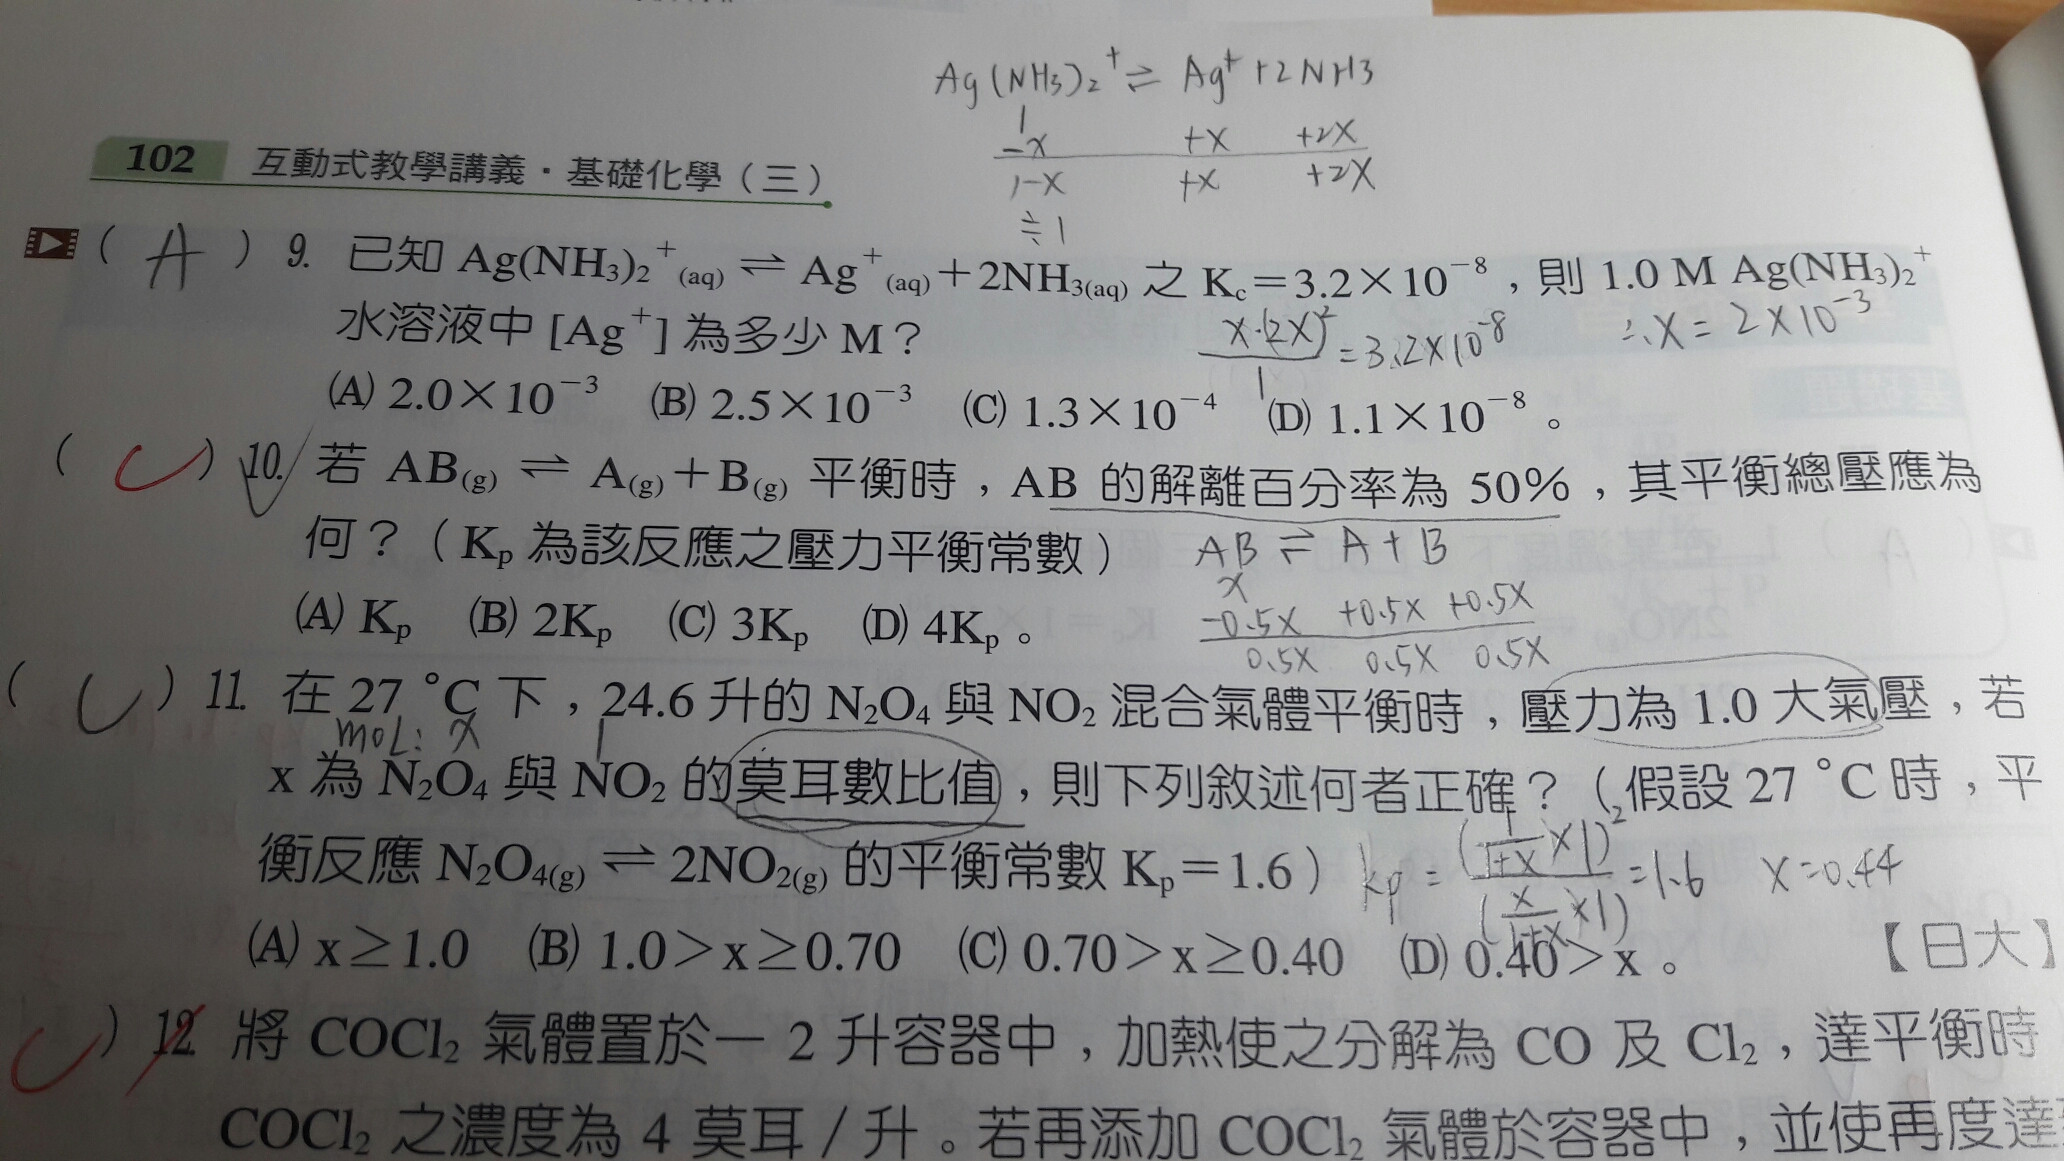 Ag(NH3)2+ ⇌ Ag+ +2NH3
1
-x +x +2x
1-x +x +2x
≒1
102 互動式教學講義・基礎化學(三)
( A ) 9. 已知 Ag(NH₃)₂⁺(aq) ⇌ Ag⁺(aq)+2NH₃(aq) 之 Kc=3.2×10⁻⁸,則 1.0 M Ag(NH₃)₂⁺
水溶液中 [Ag⁺] 為多少 M?
x·(2x)²/1 = 3.2×10⁻⁸ ∴x = 2×10⁻³
(A) 2.0×10⁻³ (B) 2.5×10⁻³ (C) 1.3×10⁻⁴ (D) 1.1×10⁻⁸。
( C ) 10. 若 AB(g) ⇌ A(g)+B(g) 平衡時,AB 的解離百分率為 50%,其平衡總壓應為
何?(Kp 為該反應之壓力平衡常數)
AB ⇌ A + B
x
-0.5x +0.5x +0.5x
0.5x 0.5x 0.5x
(A) Kp (B) 2Kp (C) 3Kp (D) 4Kp。
( C ) 11. 在 27 °C 下,24.6 升的 N₂O₄ 與 NO₂ 混合氣體平衡時,壓力為 1.0 大氣壓,若
mol: x 1
x 為 N₂O₄ 與 NO₂ 的莫耳數比值,則下列敘述何者正確?(假設 27 °C 時,平
衡反應 N₂O₄(g) ⇌ 2NO₂(g) 的平衡常數 Kp=1.6)
kp = (1/(1+x) ×1)² / (x/(1+x) ×1) = 1.6 x=0.44
(A) x≥1.0 (B) 1.0>x≥0.70 (C) 0.70>x≥0.40 (D) 0.40>x。
【日大】
( C ) 12. 將 COCl₂ 氣體置於一 2 升容器中,加熱使之分解為 CO 及 Cl₂,達平衡時
COCl₂ 之濃度為 4 莫耳/升。若再添加 COCl₂ 氣體於容器中,並使再度達